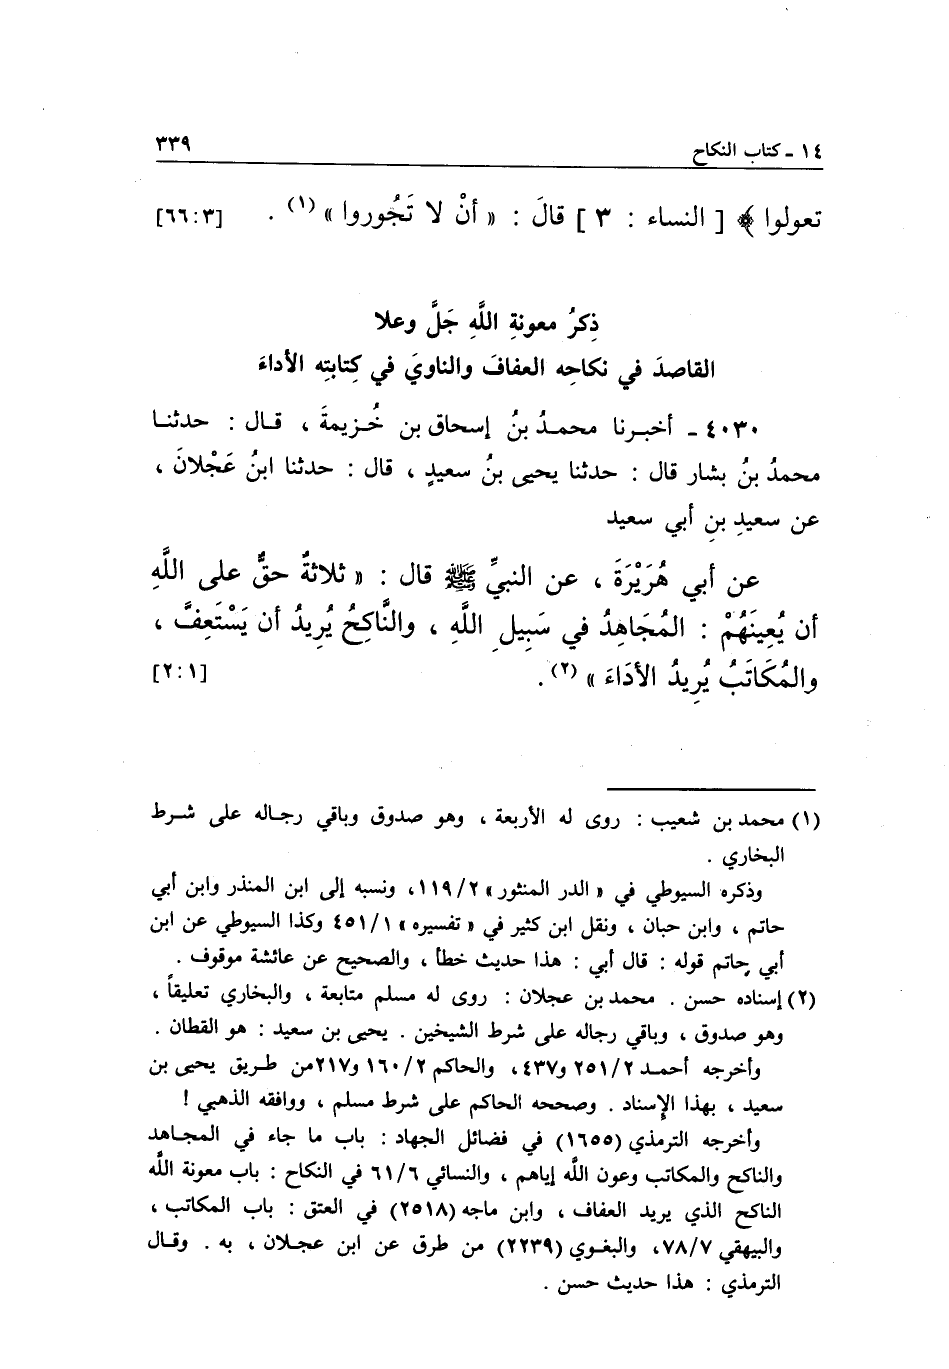 ١٤ - كتاب النكاح ٣٣٩
تعولوا ﴾ [ النساء : ٣ ] قالَ : « أنْ لا تَجُوروا » (١) . [٦٦:٣]
ذِكرُ معونةِ اللَّهِ جَلَّ وعلا
القاصدَ في نكاحِه العفافَ والناويَ في كِتابتِه الأداءَ
٤٠٣٠ - أخبـرنا محمـدُ بنُ إسحاق بن خُـزيمةَ ، قـال : حدثنـا
محمدُ بنُ بشار قال : حدثنا يحيى بنُ سعيدٍ ، قال : حدثنا ابنُ عَجْلانَ ،
عن سعيدِ بنِ أبي سعيد
عن أبي هُرَيْرَةَ ، عن النبيِّ ﷺ قال : « ثلاثةٌ حقٌّ على اللَّهِ
أن يُعِينَهُمْ : المُجَاهِدُ في سَبِيلِ اللَّهِ ، والنَّاكِحُ يُرِيدُ أن يَسْتَعِفَّ ،
والمُكَاتَبُ يُرِيدُ الأدَاءَ » (٢) . [٢:١]
(١) محمد بن شعيب : روى له الأربعة ، وهو صدوق وباقي رجـاله على شـرط
البخاري .
وذكره السيوطي في « الدر المنثور » ١١٩/٢، ونسبه إلى ابن المنذر وابن أبي
حاتم ، وابن حبان ، ونقل ابن كثير في « تفسيره » ٤٥١/١ وكذا السيوطي عن ابن
أبي حاتم قوله : قال أبي : هذا حديث خطأ ، والصحيح عن عائشة موقوف .
(٢) إسناده حسن . محمد بن عجلان : روى له مسلم متابعة ، والبخاري تعليقاً ،
وهو صدوق ، وباقي رجاله على شرط الشيخين . يحيى بن سعيد : هو القطان .
وأخرجه أحمـد ٢٥١/٢ و٤٣٧، والحاكم ١٦٠/٢ و٢١٧من طـريق يحيى بن
سعيد ، بهذا الإسناد . وصححه الحاكم على شرط مسلم ، ووافقه الذهبي !
وأخرجه الترمذي (١٦٥٥) في فضائل الجهاد : باب ما جاء في المجـاهد
والناكح والمكاتب وعون اللَّه إياهم ، والنسائي ٦١/٦ في النكاح : باب معونة اللَّه
الناكح الذي يريد العفاف ، وابن ماجه (٢٥١٨) في العتق : باب المكاتب ،
والبيهقي ٧٨/٧، والبغوي (٢٢٣٩) من طرق عن ابن عجـلان ، به . وقـال
الترمذي : هذا حديث حسن .